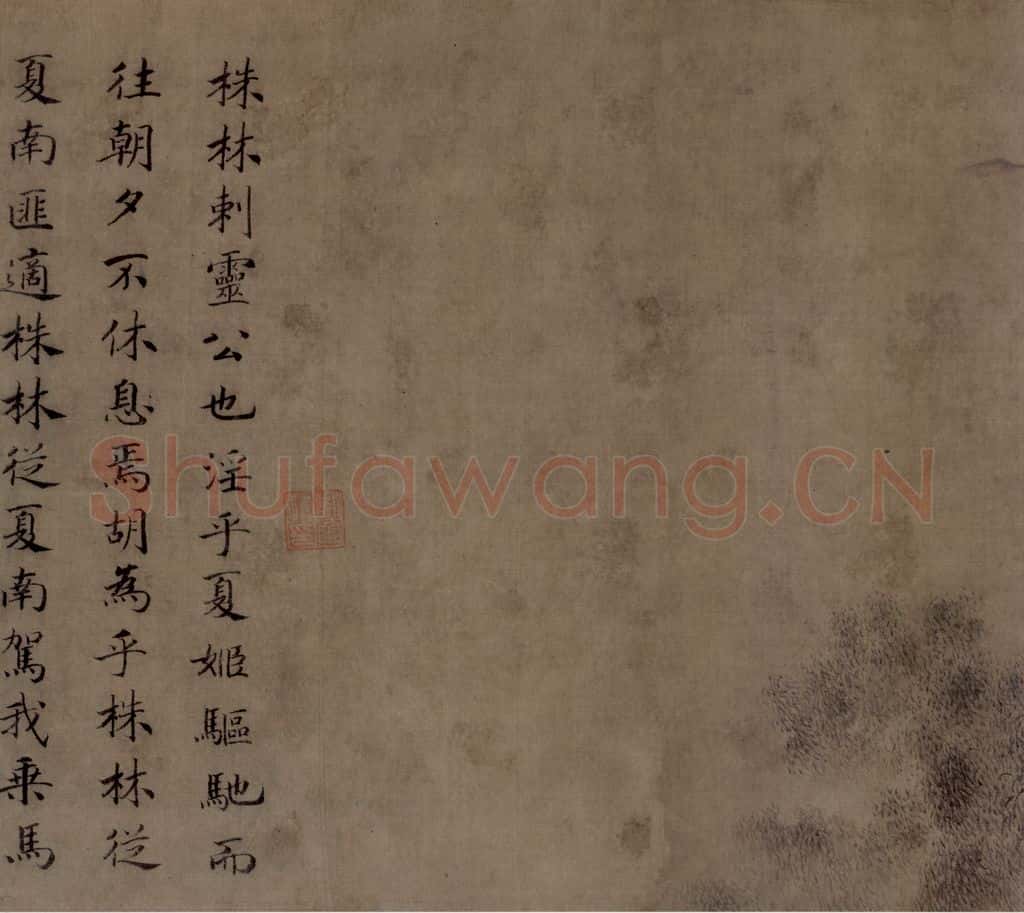 株林刺靈公也淫乎夏姬驅馳而
往朝夕不休息焉胡為乎株林從
夏南匪適株林從夏南駕我乗馬
Shufawang.CN